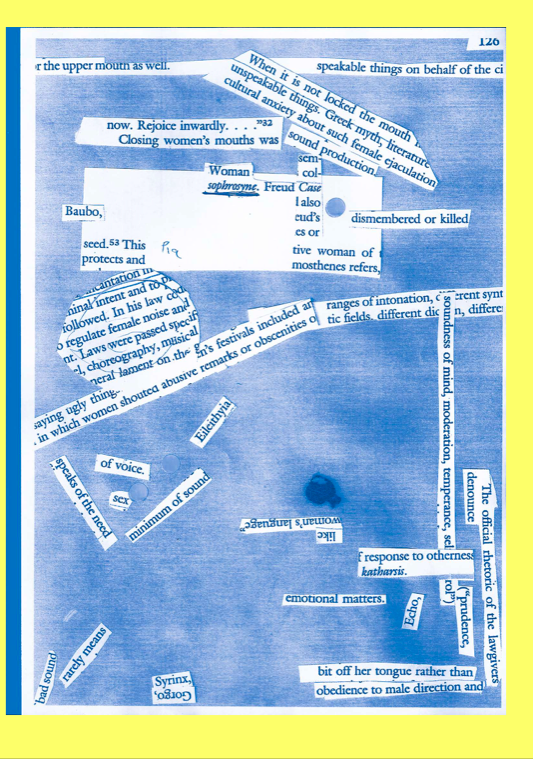 126
r the upper mouth as well.
speakable things on behalf of the ci
When it is not locked the mouth
unspeakable things. Greek myth, literature
cultural anxiety about such female ejaculation
now. Rejoice inwardly. . . .”³²
Closing women's mouths was
sound production.
sem-
col-
Woman
sophrosyne. Freud Case
I also
eud's
es or
Baubo,
dismembered or killed
seed.⁵³ This
protects and
tive woman of
mosthenes refers,
incantation in
ninal intent and to p
followed. In his law cod
o regulate female noise and
nt. Laws were passed specif
el, choreography, musical
neral lament on the
ranges of intonation, different synt
tic fields, different diction, differe
n's festivals included an
saying ugly thing
in which women shouted abusive remarks or obscenities o
soundness of mind, moderation, temperance, sel
rol”)
Eileithyia
speaks of the need
of voice.
sex
minimum of sound
like
woman's language”
The official rhetoric of the lawgivers
denounce
f response to otherness
katharsis.
(“prudence,
emotional matters.
Echo,
bad sound
rarely means
Syrinx,
Gorgo,
bit off her tongue rather than
obedience to male direction and